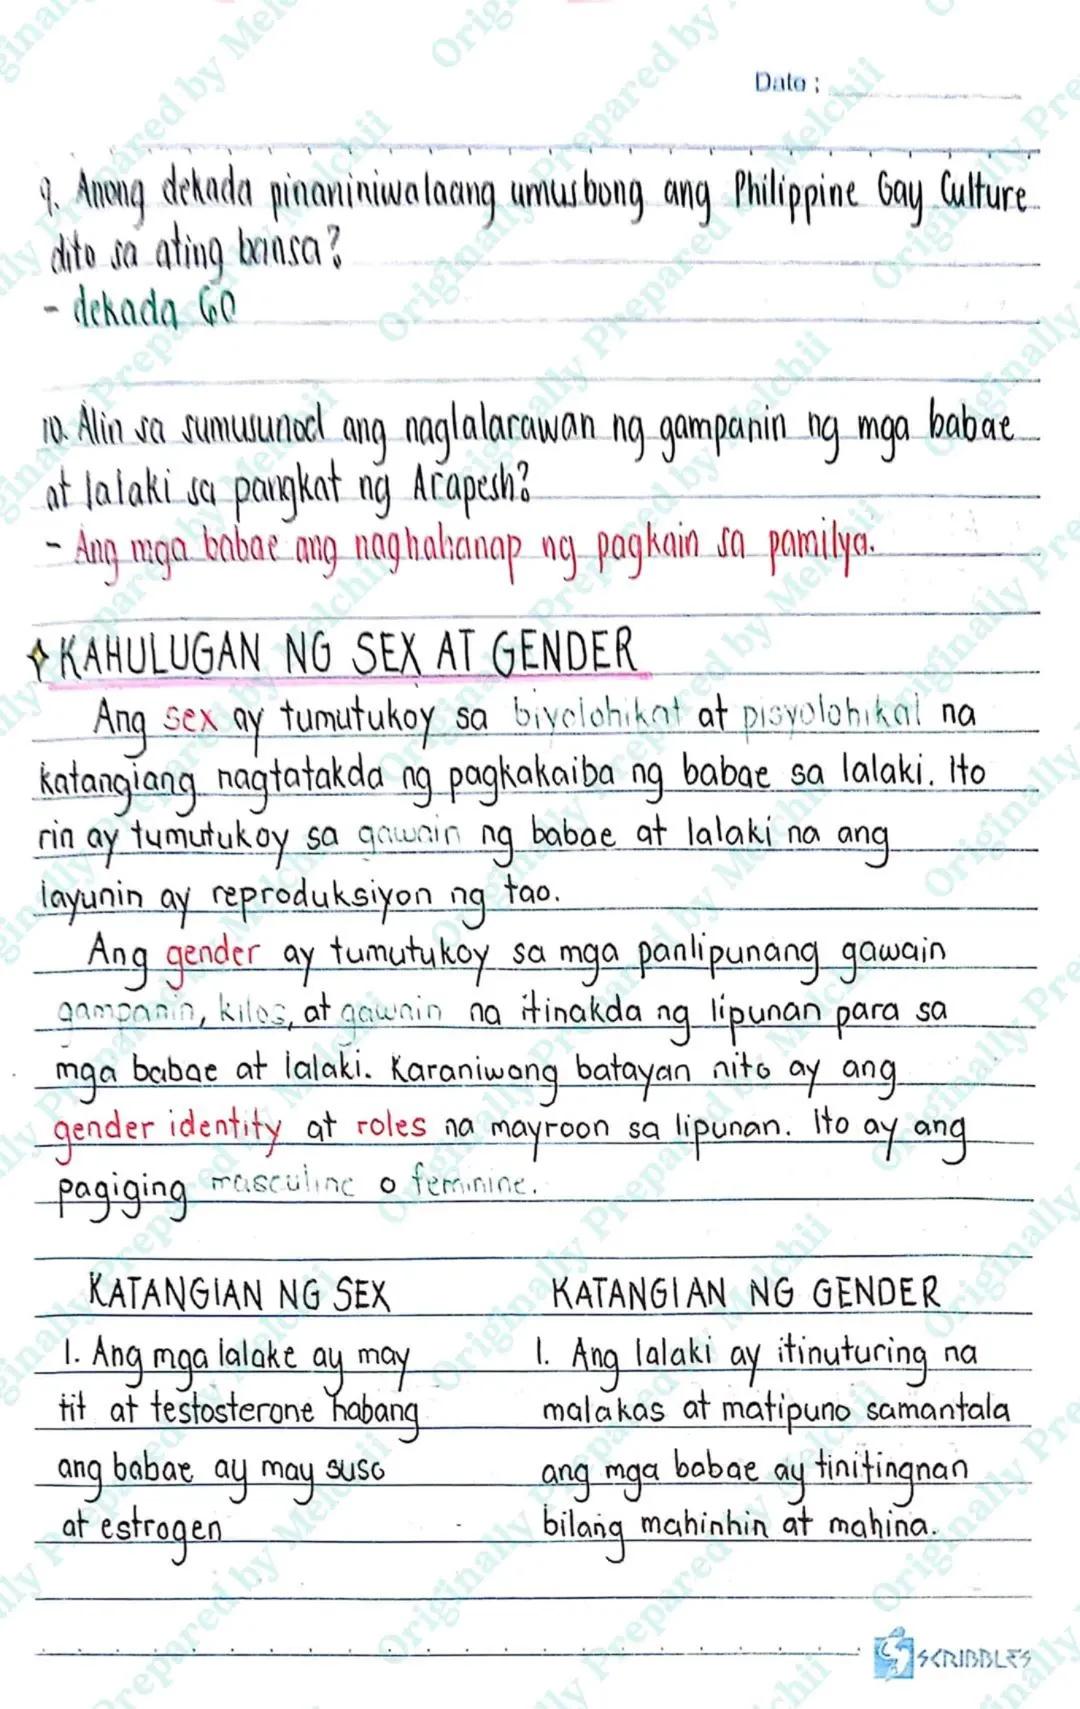 Date :
9. Anong dekada pinaniniwalaang umusbong ang Philippine Gay Culture
dito sa ating bansa?
- dekada 60
10. Alin sa sumusunod ang naglalarawan ng gampanin ng mga babae
at lalaki sa pangkat ng Arapesh?
- Ang mga babae ang naghahanap ng pagkain sa pamilya.
KAHULUGAN NG SEX AT GENDER
Ang sex ay tumutukoy sa biyolohikat at pisyolohikal na
katangiang nagtatakda ng pagkakaiba ng babae sa lalaki. Ito
rin ay tumutukoy sa gawain ng babae at lalaki na ang
layunin ay reproduksiyon ng tao.
Ang gender ay tumutukoy sa mga panlipunang gawain
gampanin, kilos, at gawain na itinakda ng lipunan para sa
mga babae at lalaki. Karaniwang batayan nito ay ang
gender identity at roles na mayroon sa lipunan. Ito ay ang
pagiging masculine o feminine.
KATANGIAN NG SEX
1. Ang mga lalake ay may
tit at testosterone habang
ang babae ay may suso
at estrogen
KATANGIAN NG GENDER
1. Ang lalaki ay itinuturing na
malakas at matipuno samantala
ang mga babae ay tinitingnan
bilang mahinhin at mahina.
SCRIBBLES
Originally Prepared by Melchii